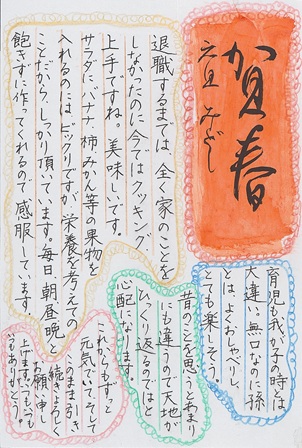 賀春
元旦 みどし
退職するまでは全く家のことを
しなかったのに今ではクッキング
上手ですね。美味しいです。
サラダにバナナ、柿みかん等の果物を
入れるのにはビックリですが栄養を考えての
ことだから、しっかり頂ています。毎日朝昼晩と
飽きずに作ってくれるので感服しています。
育児も我が子の時とは
大違い。無口なのに孫
とは、よくおしゃべりし、
とても楽しそう。
昔のことを思うとあまり
にも違うので天地が
ひっくり返るのではと
心配になります。
これからもずっと
元気でいて、そして
このまま引き
続きよろしく
お願い申し
上げます。いつもいつも
いつもありがとう。